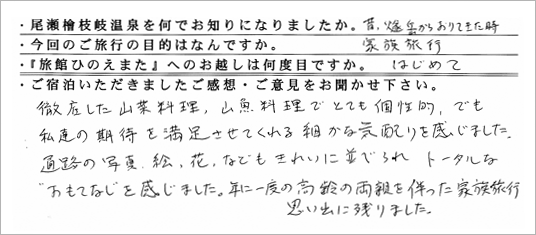 ・尾瀬檜枝岐温泉を何でお知りになりましたか。昔、燧岳からおりてきた時
・今回のご旅行の目的はなんですか。 家族旅行
・『旅館ひのえまた』へのお越しは何度目ですか。 はじめて
・ご宿泊いただきましたご感想・ご意見をお聞かせ下さい。
徹底した山菜料理,山魚料理でとても個性的,でも
私達の期待を満足させてくれる細かな気配りを感じました.
通路の写真.絵,花,などもきれいに並べられ トータルな
"おもてなし"を感じました。年に一度の高齢の両親を伴った家族旅行
思い出に残りました。